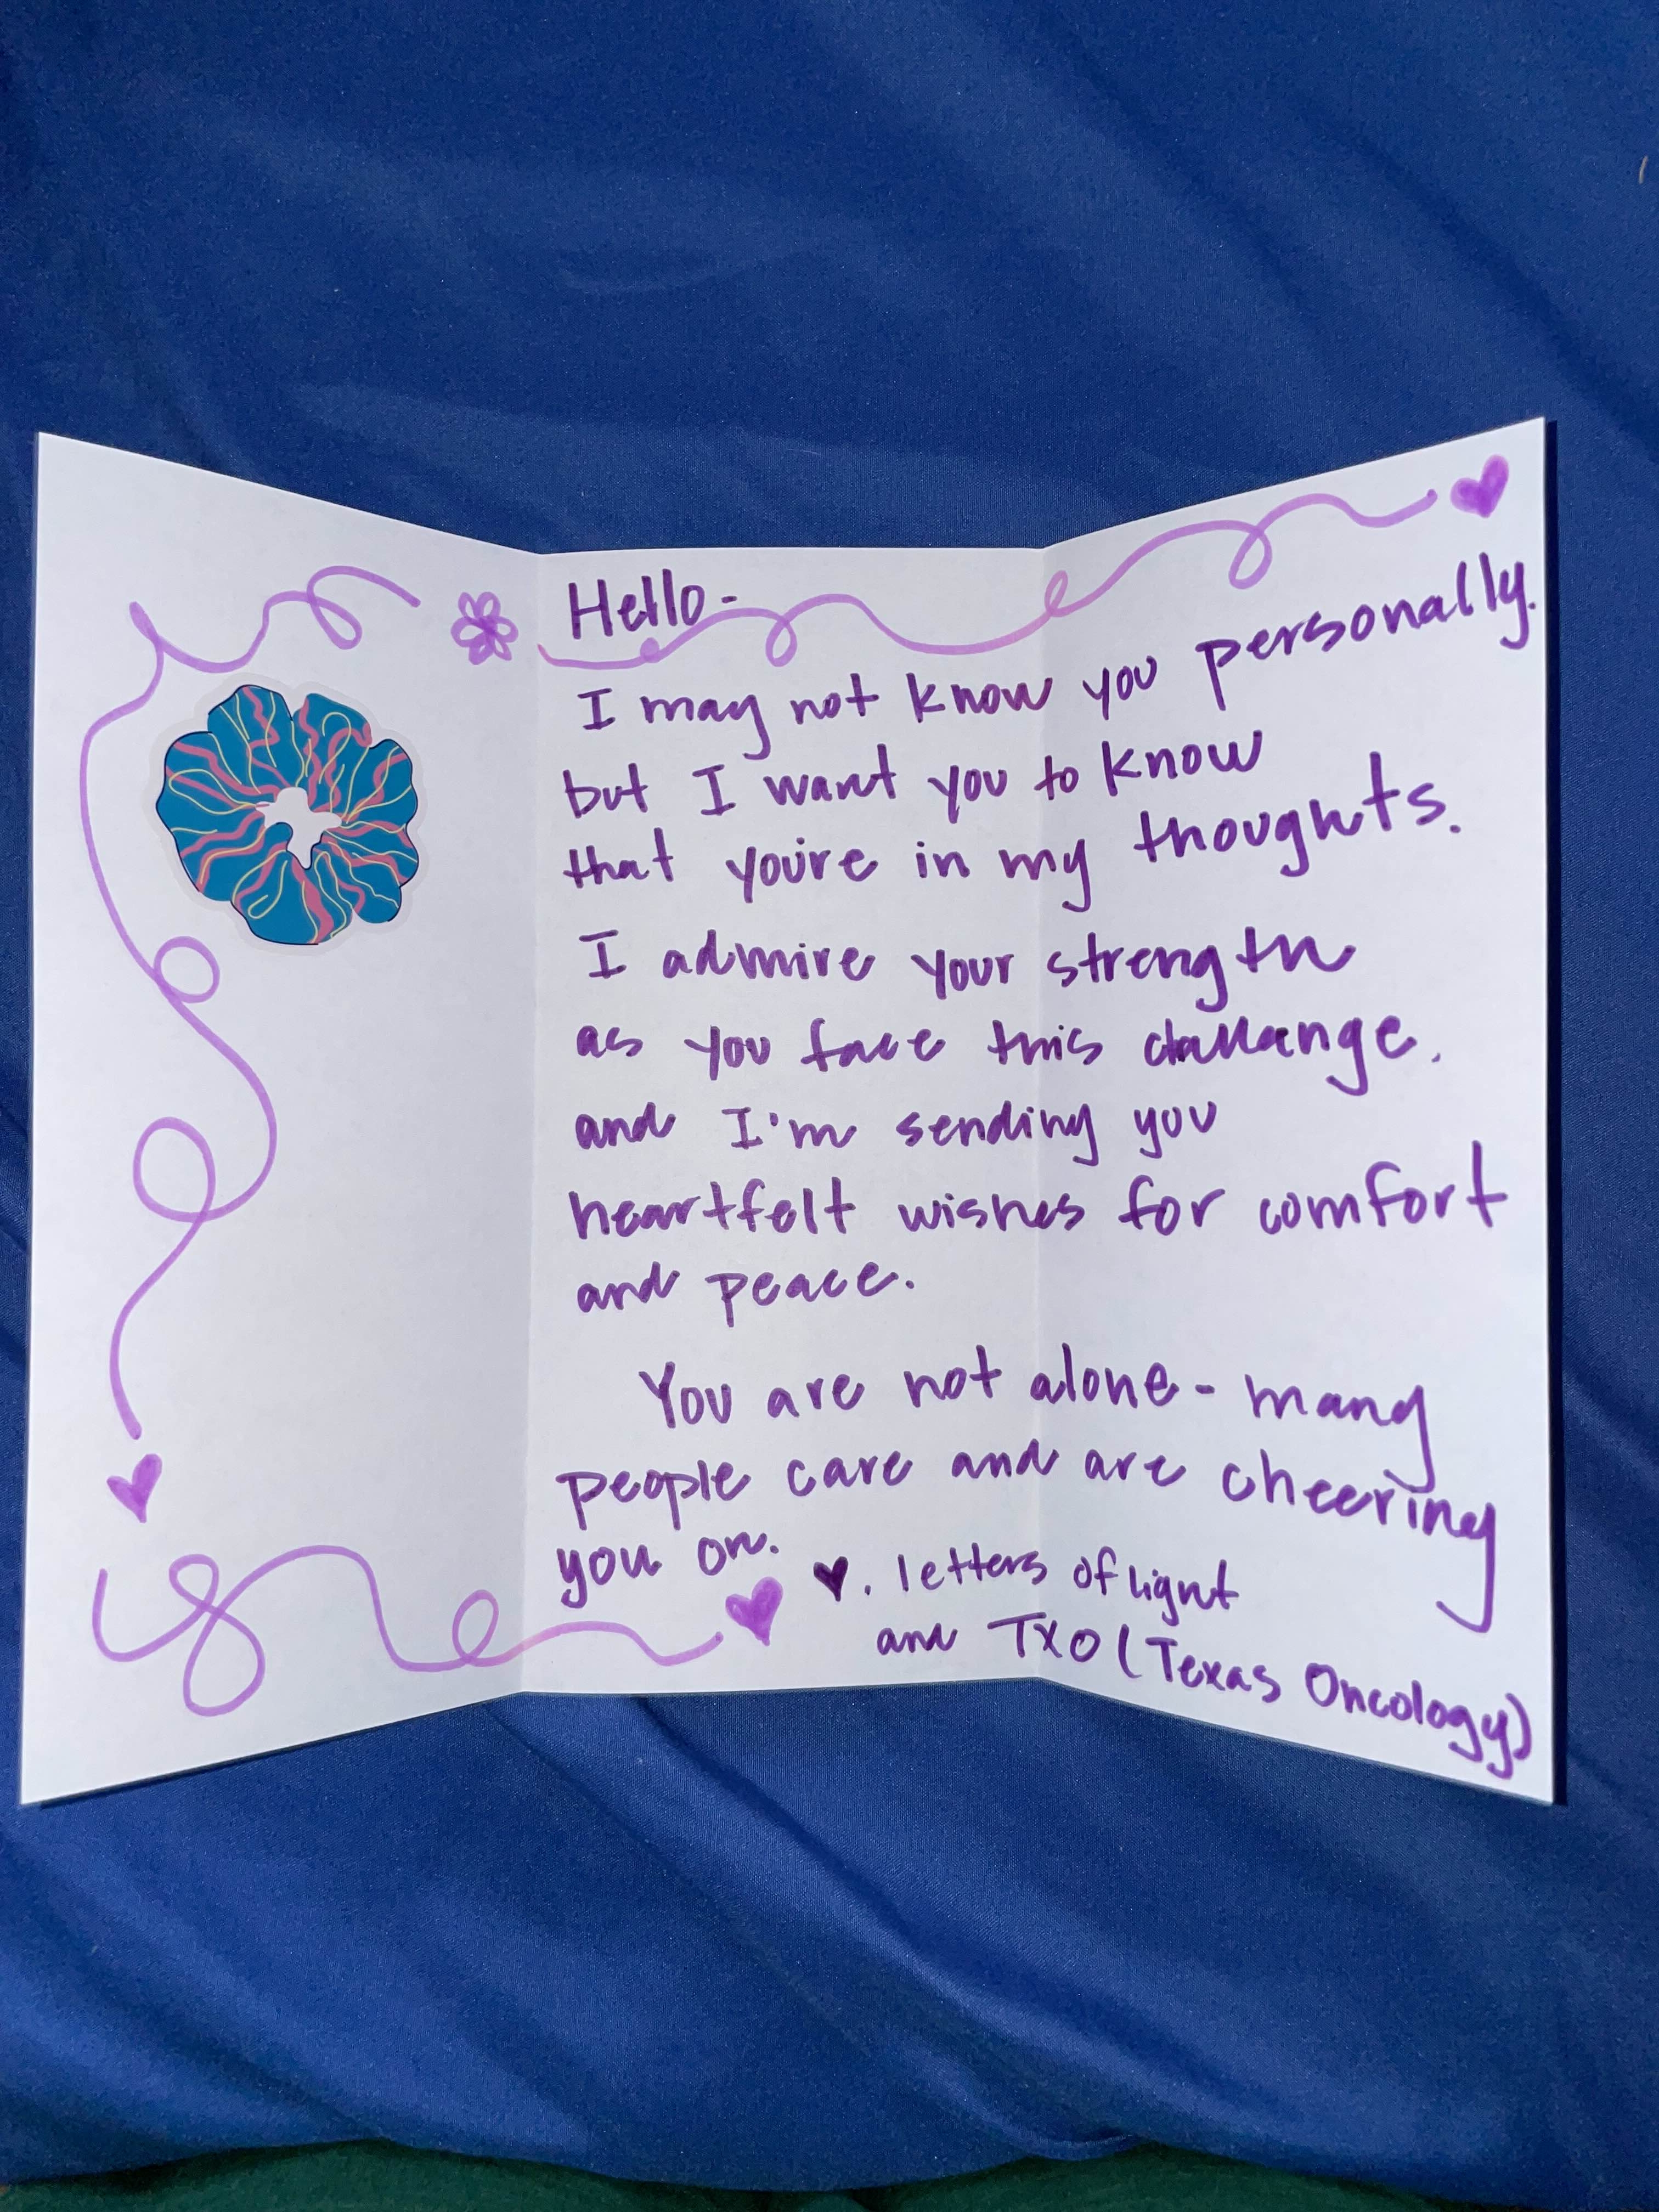 Hello-
I may not know you personally.
but I want you to know
that you're in my thoughts.
I admire your strength
as you face this challenge.
and I'm sending you
heartfelt wishes for comfort
and peace.
You are not alone - many
people care and are cheering
you on.
♥. letters of light
and TXO (Texas Oncology)